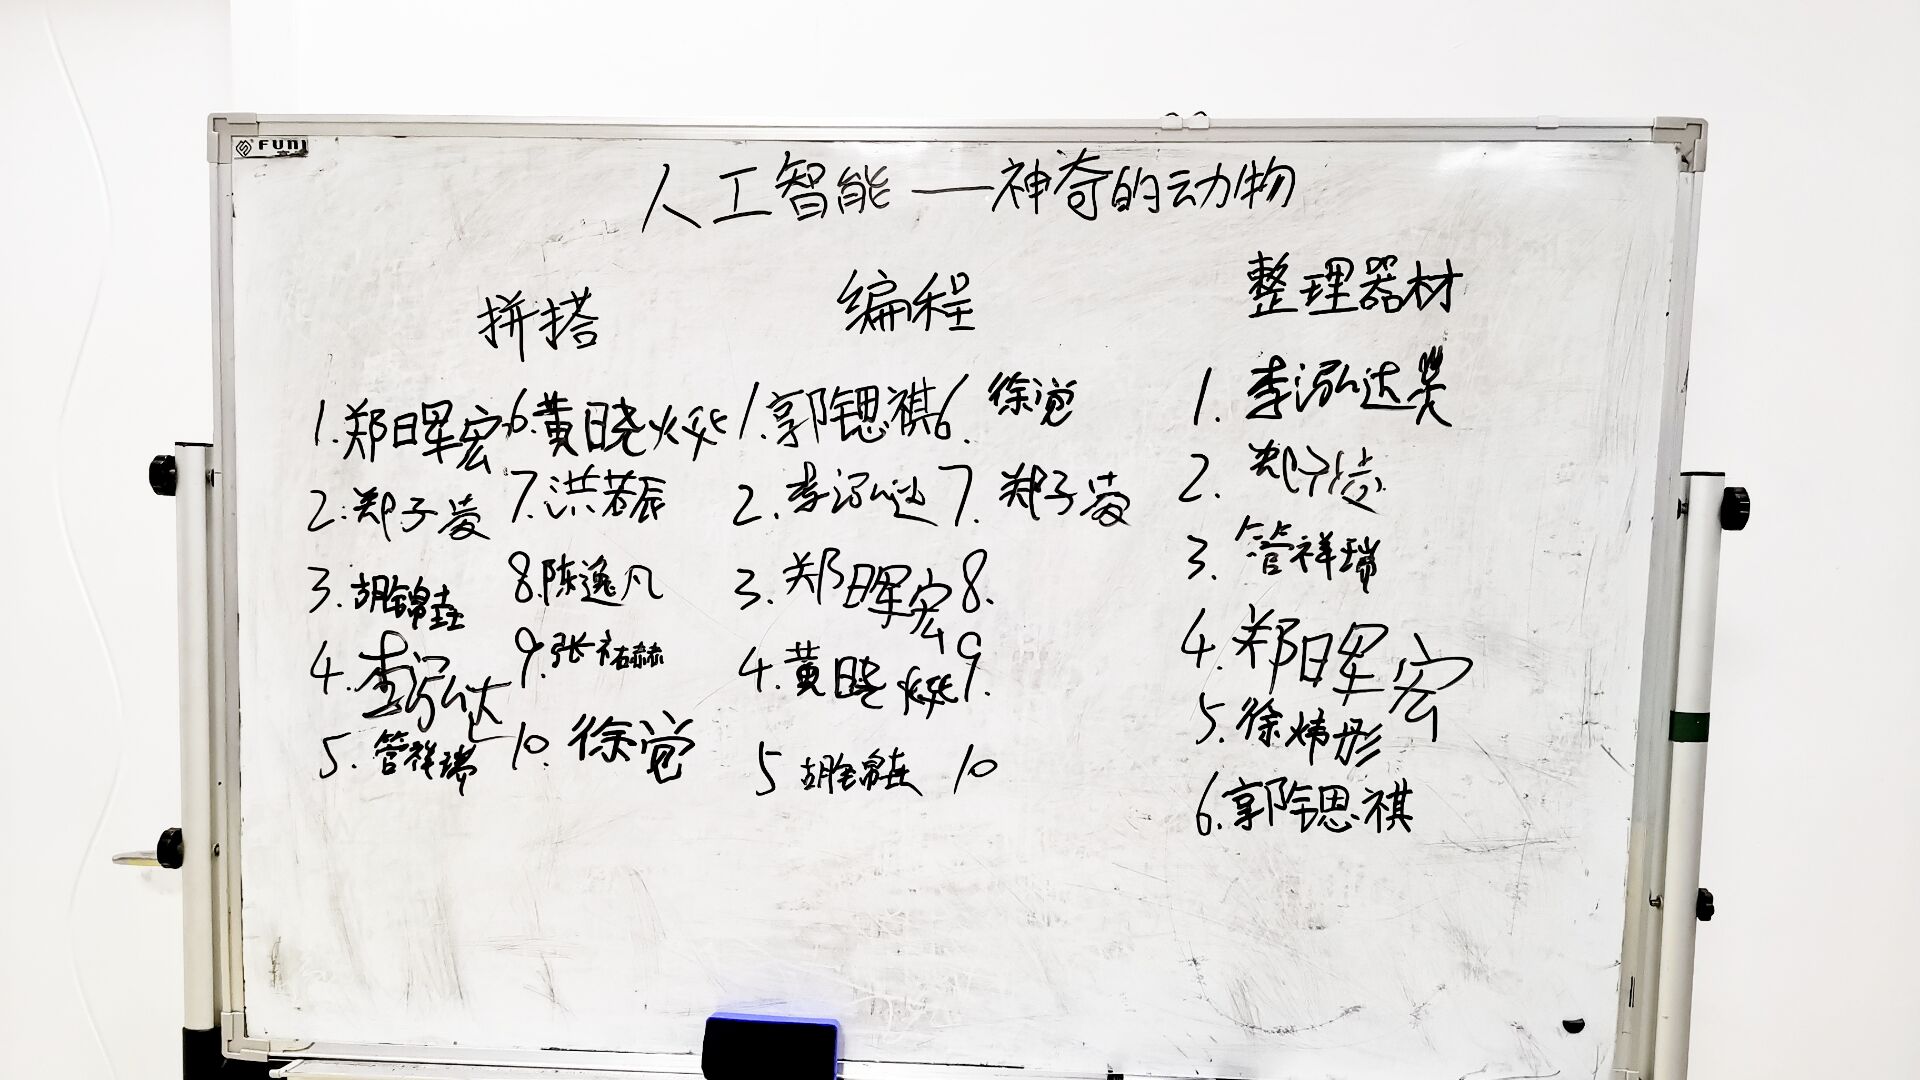 FUNI
人工智能——神奇的动物
拼搭
编程
整理器材
1.郑日晖宏
2.郑子凌
3.胡锦
4.李泓达
5.管祥瑞
6.黄晓
7.洪若辰
8.陈逸凡
9.张祐赫
10.徐觉
1.郭锶祺
2.李泓达
3.郑晖宏
4.黄晓
5 胡锦
6.徐觉
7.郑子凌
8.
9.
10
1.李泓达
2.郑子凌
3.管祥瑞
4.郑晖宏
5.徐炜彤
6.郭锶祺